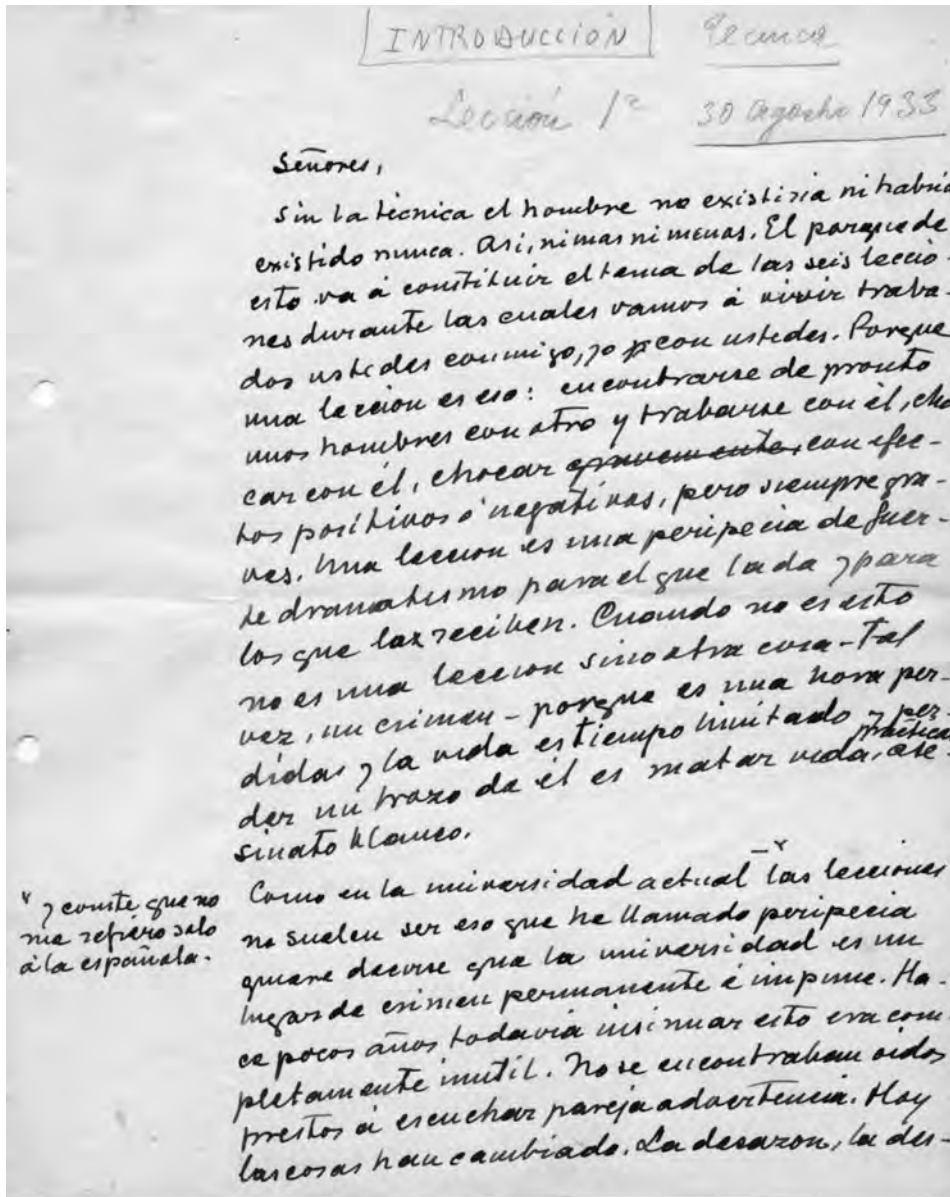 INTRODUCCIÓN Técnica
Lección 1ª 30 agosto 1933
Señores,
Sin la técnica el hombre no existiria ni habria
existido nunca. Asi, ni mas ni menos. El porque de
esto va á constituir el tema de las seis leccio-
nes durante las cuales vamos á vivir traba-
dos ustedes conmigo, yo con ustedes. Porque
una leccion es eso: encontrarse de pronto
unos hombres con otro y trabarse con él, cho
car con él, chocar gravemente, con efec-
tos positivos ó negativos, pero siempre gra-
ves. Una leccion es una peripecia de fuer-
te dramatismo para el que la da y para
los que la reciben. Cuando no es esto
no es una leccion sino otra cosa - Tal
vez, un crimen - porque es una hora per-
dida y la vida es tiempo limitado y per-
der un trozo de él es matar vida, práctica ase-
sinato blanco.
Como en la universidad actual -ˣ las lecciones
no suelen ser eso que he llamado peripecia
quiere decirse que la universidad es un
lugar de crimen permanente é impune. Ha-
ce pocos años todavia insinuar esto era com
pletamente inutil. No se encontraban oidos
prestos á escuchar pareja advertencia. Hoy
las cosas han cambiado. La desazon, la des-
ˣ y conste que no
me refiero solo
á la española.